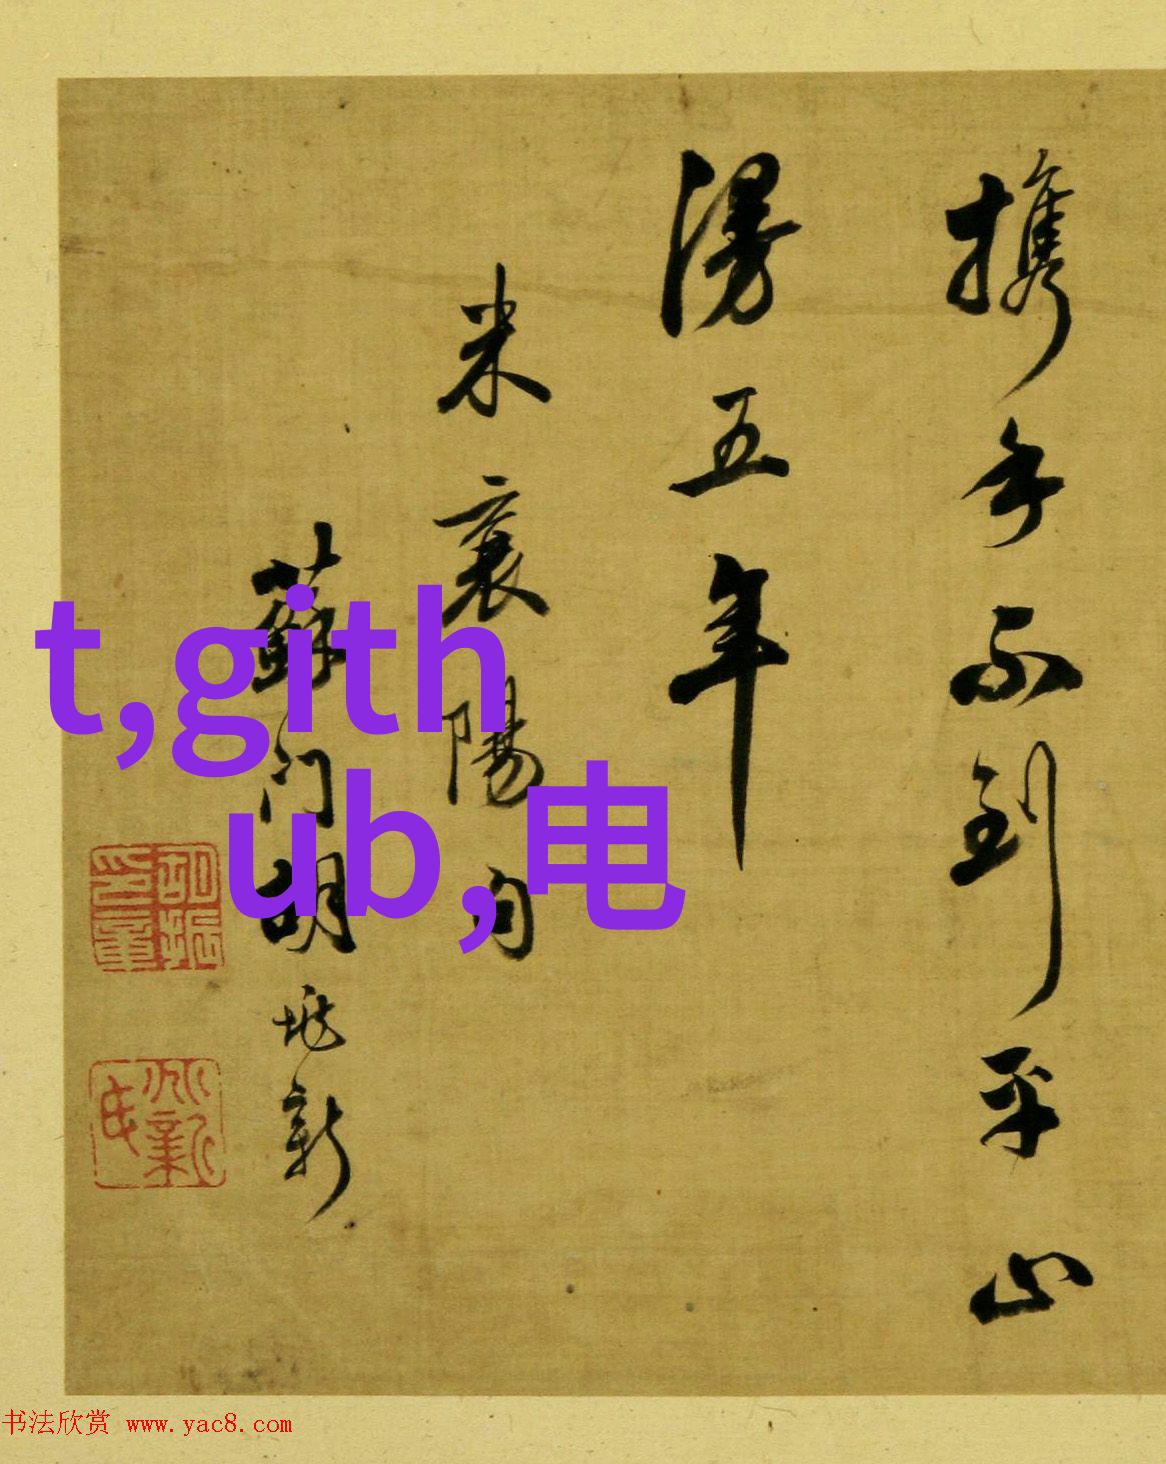 携手不到平山
漫五年
米襄陽句
蘇門胡垗新
t,gith
ub,电
书法欣赏 www.yac8.com